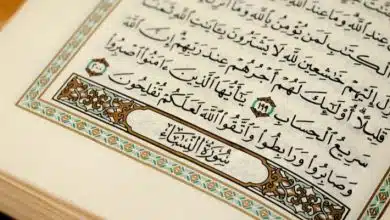 عِندِ ٱللَّهِ وَمَا عِندَ ٱللَّهِ
ٱلْكِتَٰبِ لَمَن يُؤْمِنُ بِٱللَّهِ وَمَآ
إِلَيْهِمْ خَٰشِعِينَ لِلَّهِ لَا يَشْتَرُونَ بِـَٔايَٰتِ ٱللَّهِ ثَمَنًا
قَلِيلًا أُو۟لَٰٓئِكَ لَهُمْ أَجْرُهُمْ عِندَ رَبِّهِمْ إِنَّ
سَرِيعُ ٱلْحِسَابِ ١٩٩ يَٰٓأَيُّهَا ٱلَّذِينَ ءَامَنُوا۟ ٱصْبِرُوا۟
وَصَابِرُوا۟ وَرَابِطُوا۟ وَٱتَّقُوا۟ ٱللَّهَ لَعَلَّكُمْ تُفْلِحُونَ ٢٠٠
سُورَةُ ٱلنِّسَاءِ